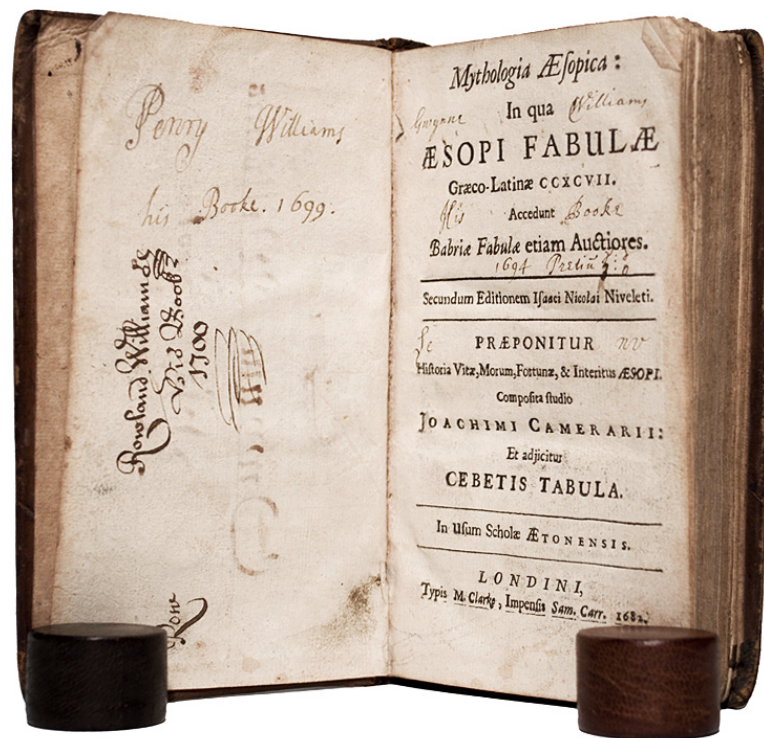 Penry Williams
his Booke. 1699.
Rowland Williams
His Booke
1700
Row
Mythologia Æſopica:
In qua
Williams
ÆSOPI FABULÆ
Græco-Latinæ CCXCVII.
His Accedunt Booke
Babriæ Fabulæ etiam Auctiores.
1694 Pretiũ
Secundum Editionem Iſaaci Nicolai Niveleti.
PRÆPONITUR
Hiſtoria Vitæ, Morum, Fortunæ, & Interitus ÆSOPI.
Compoſita ſtudio
JOACHIMI CAMERARII:
Et adjicitur
CEBETIS TABULA.
In Uſum Scholæ ÆTONENSIS.
LONDINI,
Typis M. Clarke, Impenſis Sam. Carr. 1682.